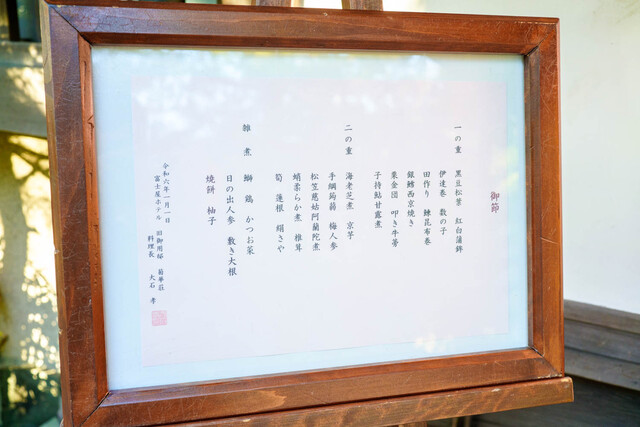 御節
一の重 黒豆松葉 紅白蒲鉾
伊達巻 数の子
田作り 鰊昆布巻
銀鱈西京焼き
栗金団 叩き牛蒡
子持鮎甘露煮
二の重 海老芝煮 京芋
手綱蒟蒻 梅人参
松笠慈姑阿蘭陀煮
蛸柔らか煮 椎茸
筍 蓮根 絹さや
雑煮 鰤 鶏 かつお菜
日の出人参 敷き大根
焼餅 柚子
令和六年一月一日
富士屋ホテル 旧御用邸 菊華荘
料理長 大石 孝